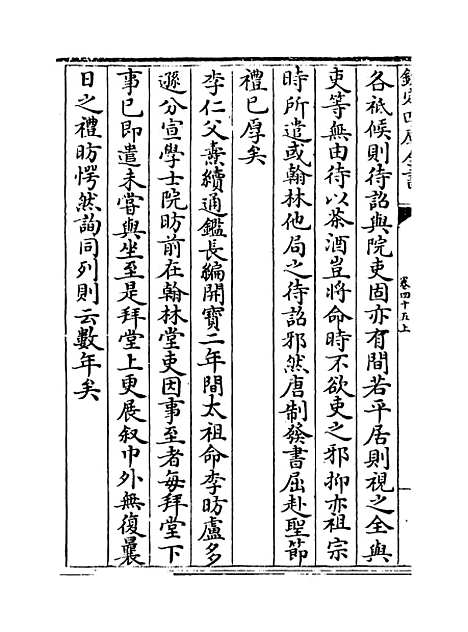 欽定四庫全書
卷四十五上
各祗候則待詔與院吏固亦有間若平居則視之全與
吏等無由待以茶酒豈將命時不欲吏之邪抑亦祖宗
時所遣或翰林他局之待詔邪然唐制發書屈赴聖節
禮已厚矣
李仁父燾續通鑑長編開寶二年間太祖命李昉盧多
遜分宣學士院昉前在翰林堂吏因事至者每拜堂下
事已即遣未嘗與坐至是拜堂上更展叙巾外無復曩
日之禮昉愕然詢同列則云數年矣